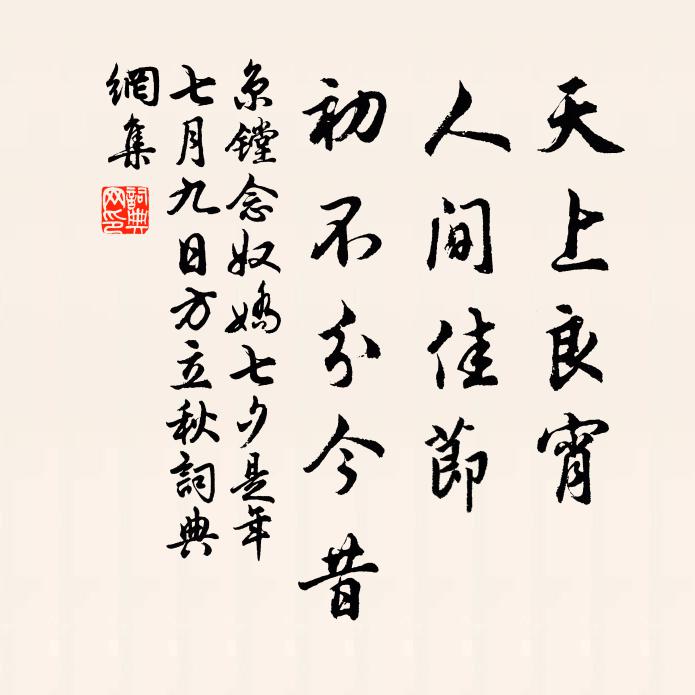 天上良宵
人間佳節
初不分今昔
京鏜念奴嬌七夕是年
七月九日方立秋詞典
網集
詞典網印